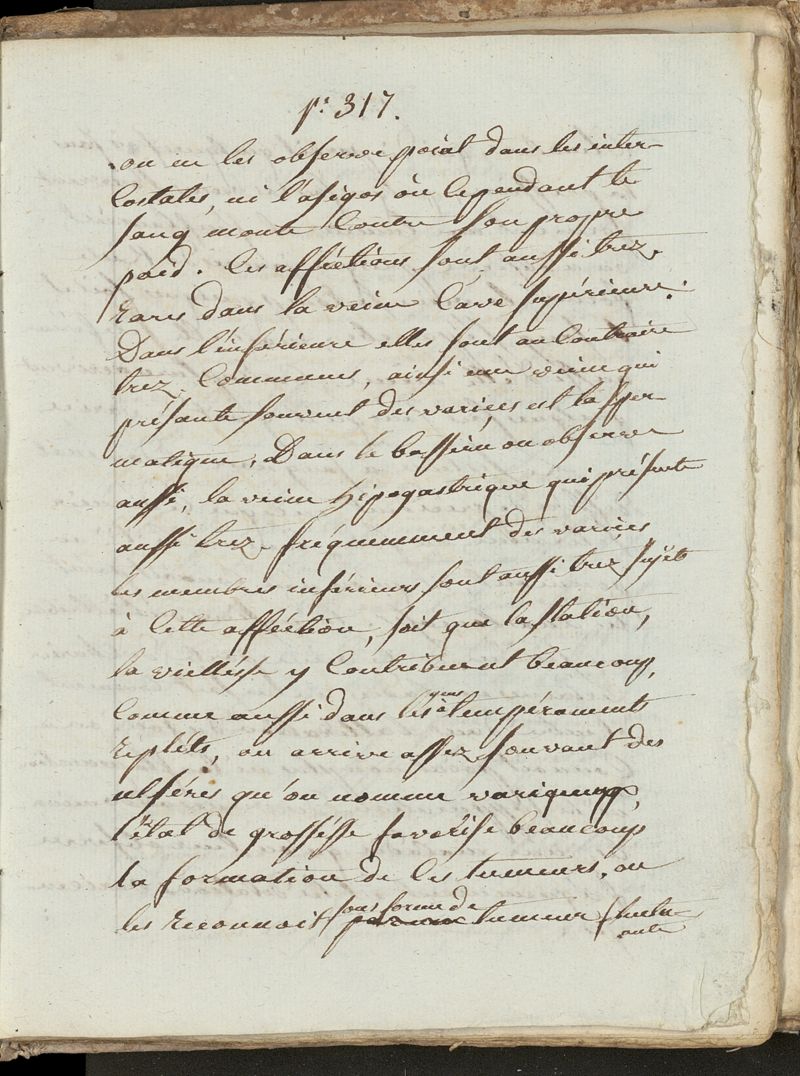 p.r 317.
on ne les observe point dans les inter-
Costales, ni l'asigos où Cependant le
sang monte Contre son propre
poid. Ces affections sont aussi trez.
rares dans la veine Cave supérieure.
Dans l'inférieure elles sont au Contraire
trez. Communes, ainsi une veine qui
présante souvent des varices est la sper
matique, Dans le bassin on observe
aussi, la veine hipogastrique qui présente
aussi trez. fréquemment des varices
les membres inférieurs sont aussi trez sujèts
à Cette affection, soit que la station,
la viellésse y Contribuent beaucoup,
Comme aussi dans les gens à tempérament
replèts, on arrive assez souvant des
ulséres qu'on nomme variqueux,
l'état de grossésse favorise beaucoup
la formation de Ces tumeurs, on
les reconnoit sous forme de tumeur fluctu-
ante